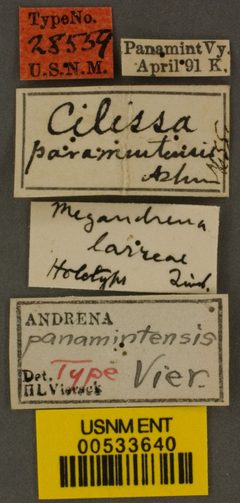 Type No.
28539
U.S.N.M.
Panamint Vy.
April '91 K.
Cilissa
panamintensis
Ashm
Megandrena
larreae
Holotype
ANDRENA
panamintensis
Type Vier.
Det.
H L Viereck
USNM ENT
00533640